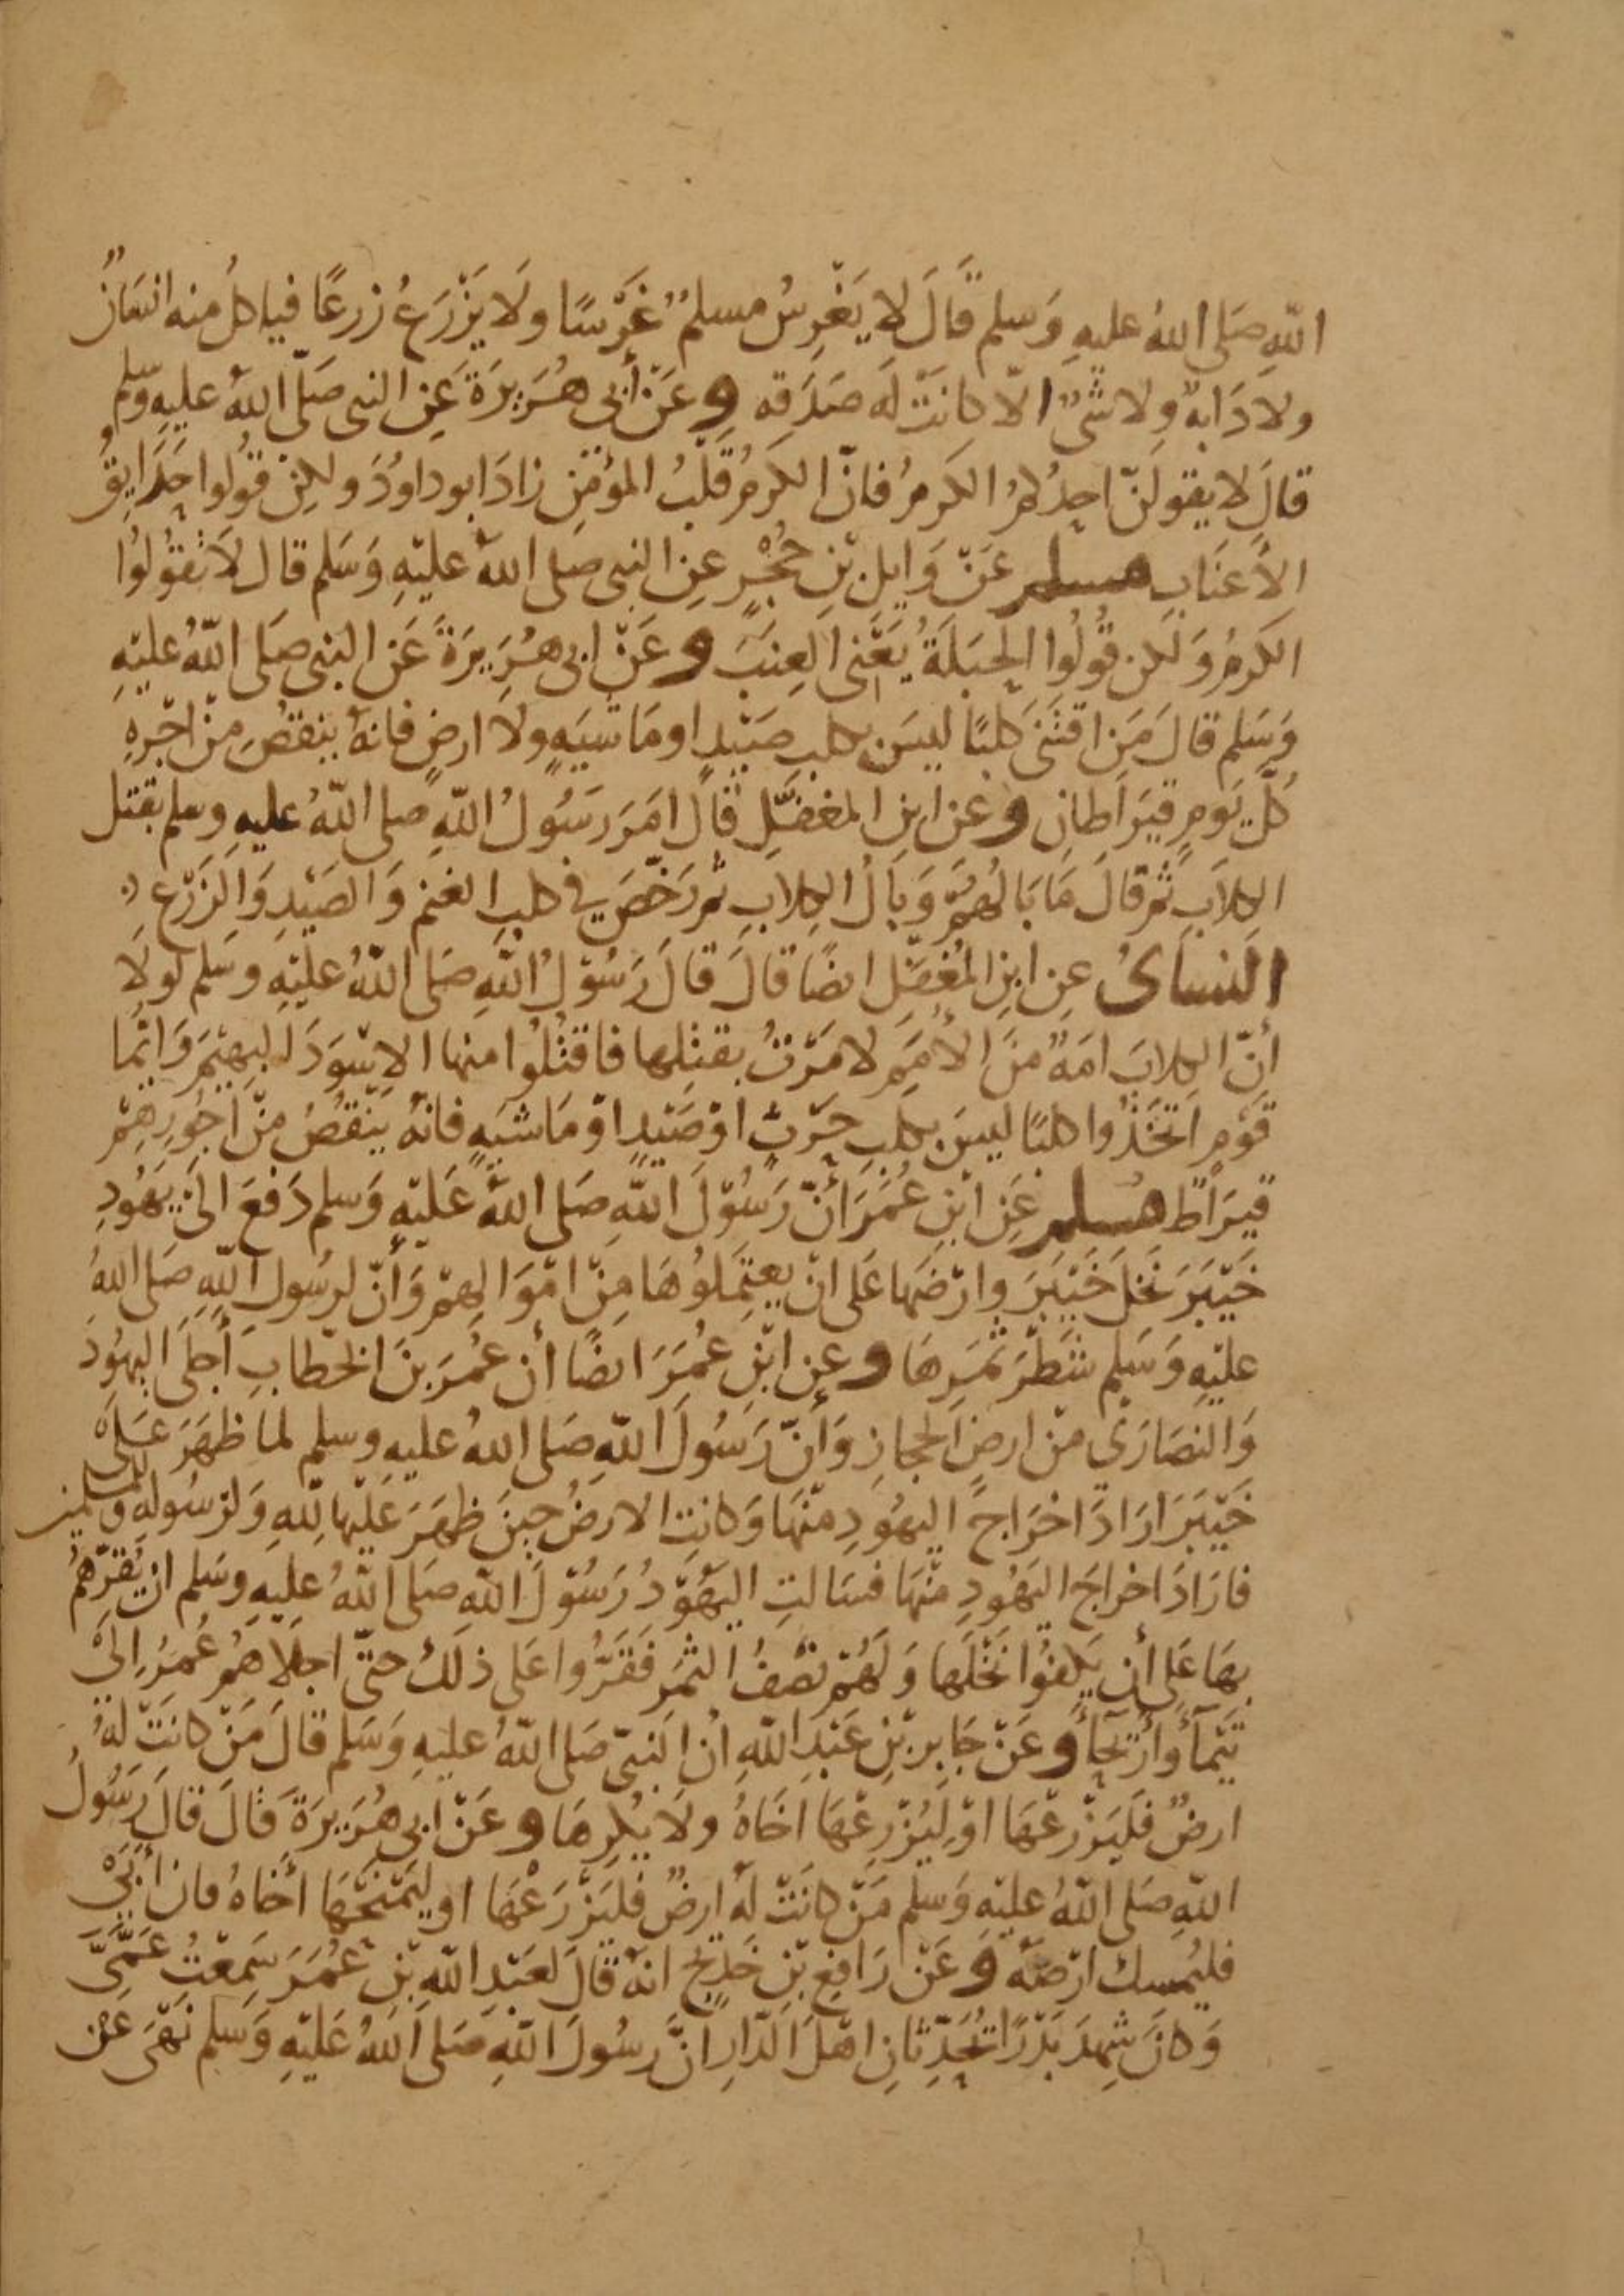 اللهِ صَلى اللهُ عليهِ وَسلم قَالَ لا يَغْرِسُ مسلمٌ غَرْسًا ولَا يَزْرَعُ زرعًا فياكلُ منه انسَانٌ
ولا دَابةٌ ولا شىٌ الا كانَتْ لَه صَدَقه وعَنْ أَبى هُرَيرَةَ عَنِ النبى صَلّى اللهُ عليهِ وسَلم
قالَ لا يقولَنّ احدُكمُ الكرمُ فانّ الكَرمُ قَلْبُ المؤمِن زادَ ابوداودُ ولكِنْ قُولوا حَدَايقُ
الأَعنَابِ مسلم عَنْ وَايلِ بْنِ حُجْرٍ عنِ النبى صلى اللهُ عليْهِ وَسَلم قال لَا تقُولُوا
الكرمُ وَلكن قُولُوا الحَبَلَةُ يَعْنى العِنَبَ وعَنْ ابى هُرَيرَةَ عَن النبى صَلى اللهُ عليْهِ
وَسَلم قالَ مَنِ اقتَنَى كلبًا ليسَ بكلبِ صَيْدٍ او مَاشيَهٍ ولا ارضٍ فانهُ ينقصُ منْ اجْرهِ
كُلّ يَومٍ قيَراطانِ وعن ابنِ المغفَّلِ قَالَ امَرَ رَسُولُ اللهِ صلى اللهُ عليهِ وسلم بقتل
الكلَابِ ثم قالَ مَا بَالهُمْ وَبَالُ الكِلَابِ ثم رَخّصَ فى كلبِ الغنم وَالصَيْدِ وَالزَرْعِ
النساىُ عنِ ابنِ المُغَفّلِ ايضًا قالَ قالَ رَسُوْلُ اللهِ صَلى اللهُ عليْهِ وسَلم لَولَا
أنّ الكِلابَ امَةٌ منَ الأُمَمِ لامَرْتُ بقتْلِها فاقتُلُوا منها الاسْوَدَ البهيْمَ وَايّما
قَوْمٍ اتخَذُوا كلبًا ليسَ بكلبِ حَرْثٍ اوْ صَيْدٍ اوْ مَاشيَهٍ فانهُ يَنْقُصُ منْ اجُورِهِمْ
قيرَاطٌ مُسلم عَنِ ابْنِ عُمَرَ أَنّ رَسُوْلَ اللهِ صَلى اللهُ عَليْهِ وَسلم دَفعَ الىَ يَهُودِ
خَيْبَرَ نَخلَ خَيْبَرَ وارْضَها عَلى انْ يعتمِلُوهَا منْ امْوَالهِمْ وَأَنّ لرسُولِ اللهِ صَلى اللهُ
عليْهِ وَسَلم شَطْرَ ثمَرِهَا وعنِ ابْنِ عُمَرَ ايضًا أن عُمرَ بنَ الخطابِ أَجلَى اليهُودَ
وَالنصَارَىَ منْ ارضِ الحجازِ وَأَنّ رَسُولَ اللهِ صَلى اللهُ عليهِ وسلم لما ظهَرَ عَلىَ
خَيْبَرَ ارَادَ اخرَاجَ اليهُودِ منْهَا وَكانتِ الارضُ حينَ ظهَرَ عَليْها للهِ وَلرسُولهِ وللمسلمين
فارَادَ اخراجَ اليَهُودِ منْهَا فسَالتِ اليَهُوْدُ رَسُوْلَ اللهِ صَلى اللهُ عليهِ وسَلم انْ يُقرّهُمْ
بهَا عَلى أن يَكفُوا نَخْلَها وَلَهُمْ نصْفُ الثمَر فَقَرُّوا عَلى ذلكَ حتّى اجلَاهمْ عُمَرُ الَىَ
تَيْمَآءَ وأَرْيحَآءَ وعَنْ جَابر بْنِ عَبْدِ اللهِ ان النبىّ صَلى اللهُ عليهِ وَسَلم قالَ مَنْ كانَتْ لهُ
ارضٌ فَليَزْرعْهَا اوْ لِيُزْرِعْهَا اخَاهُ ولَا يُكْرِهَا وعَنْ ابى هُرَيرَةَ قالَ قالَ رَسُولُ
اللهِ صَلى اللهُ عليْهِ وَسلم مَنْ كانَتْ لهُ ارضٌ فَليَزْرَعْهَا او ليَمْنَحْهَا أَخاهُ فان أَبَىْ
فليُمسك ارْضَهُ وعَنْ رَافِعِ بْنِ خَدِيجٍ انهُ قالَ لعَبْدِ اللهِ بْنِ عُمَرَ سَمِعْتُ عَمَّىَّ
وَكانَا شهِدَا بَدْرًا تُحَدِّثانِ اهْلَ الدّارِ انَّ رسُولَ اللهِ صَلى اللهُ عَليْهِ وَسَلم نَهَى عَنْ